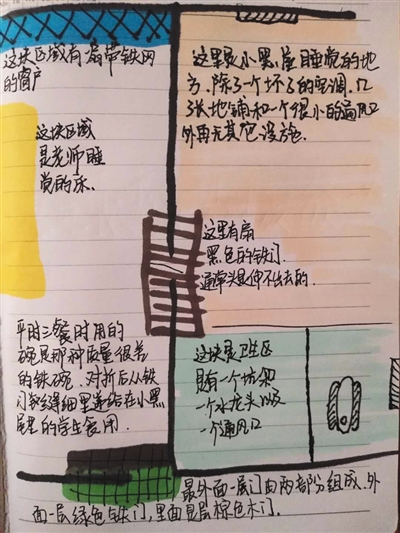 这块区域有扇带铁网
的窗户
这块区域
是老师睡
觉的床.
这里是小黑屋睡觉的地
方,除了一个坏了的空调、几
张地铺和一个很小的通风口
外再无其它设施
这里有扇
黑色的铁门
通常头是伸不出去的.
平时三餐时用的
碗是那种质量很差
的铁碗.对折后从铁
门
缝细里递给在小黑
屋里的学生食用.
这块是卫生区
只有一个坑架
一个水龙头以及
一个通风口
最外面一层门由两部分组成.外
面一层绿色铁门,里面是层棕色木门.